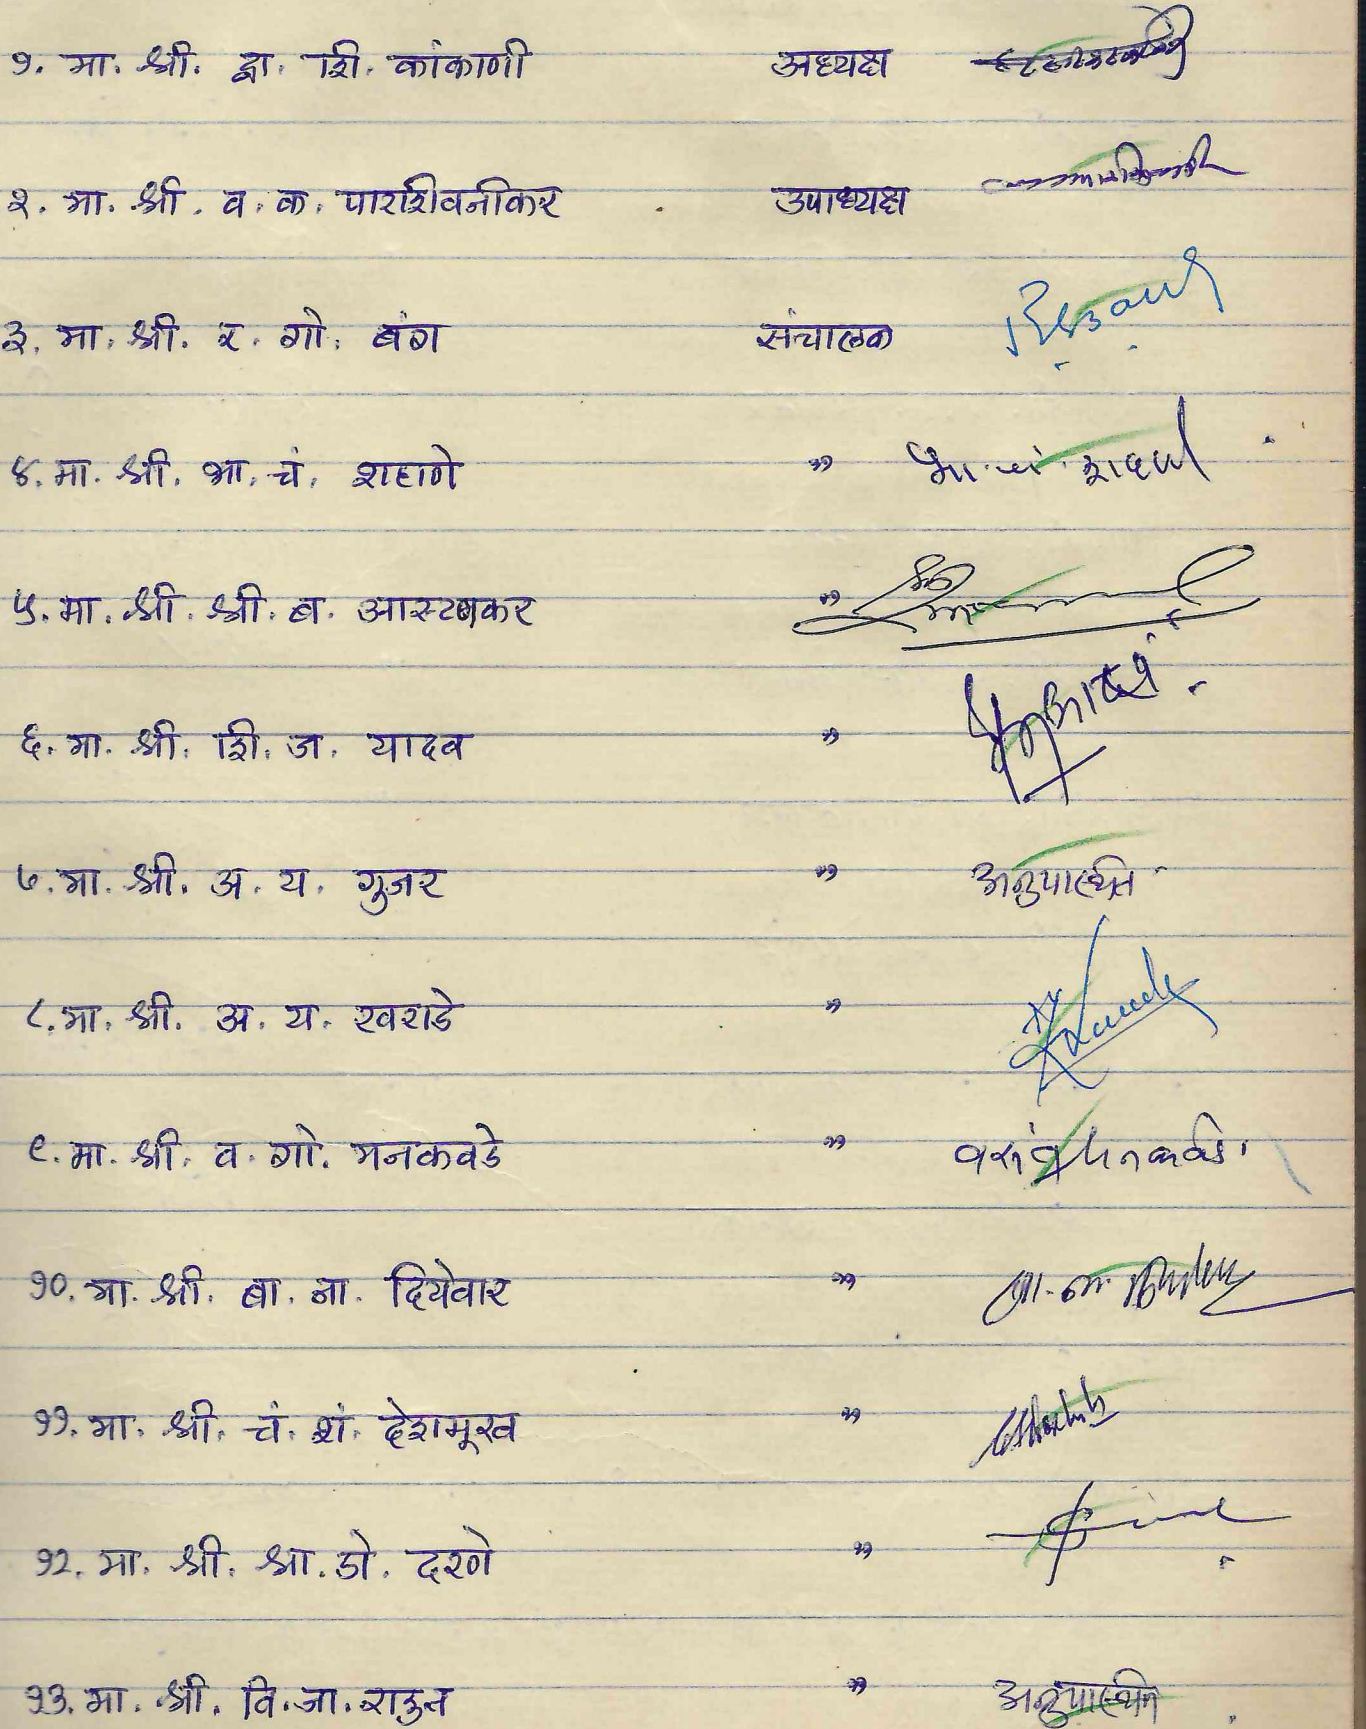 १. मा. श्री. द्वा. शि. कांकाणी अध्यक्ष
२. मा. श्री. व. क. पारशिवनीकर उपाध्यक्ष
३. मा. श्री. र. गो. बंग संचालक
४. मा. श्री. भा. चं. शहाणे "
५. मा. श्री. श्री. ब. आस्टणकर "
६. मा. श्री. शि. ज. यादव "
७. मा. श्री. अ. य. गुजर " अनुपास्थित
८. मा. श्री. अ. य. खराडे "
९. मा. श्री. व. गो. मनकवडे " वसंत मनकवडे
१०. मा. श्री. बा. ना. दियेवार "
११. मा. श्री. चं. शं. देशमूख "
१२. मा. श्री. श्रा. डो. दरणे "
१३. मा. श्री. वि. जा. राऊत " अनुपास्थित